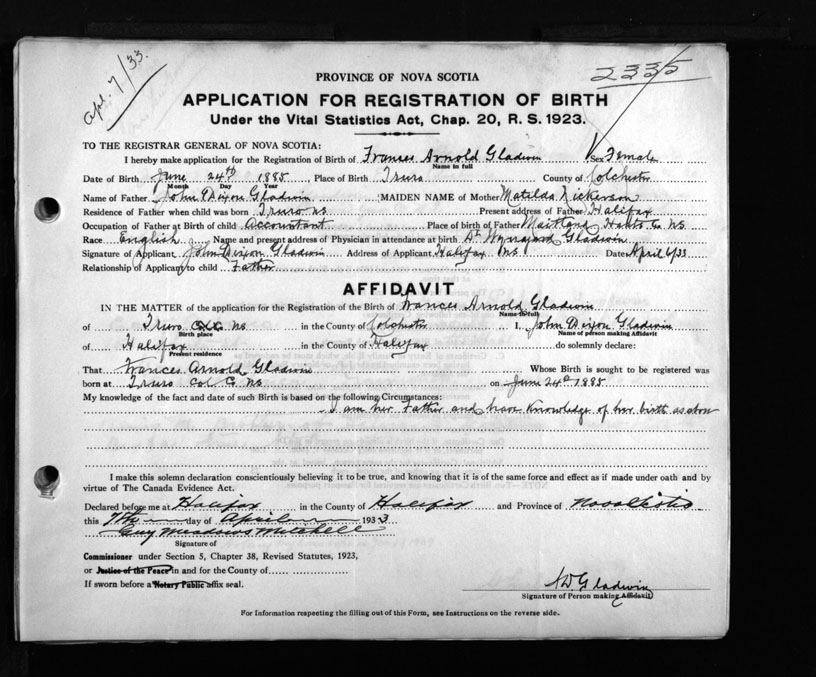 Apl. 7/33.
2335
PROVINCE OF NOVA SCOTIA
APPLICATION FOR REGISTRATION OF BIRTH
Under the Vital Statistics Act, Chap. 20, R. S. 1923.
TO THE REGISTRAR GENERAL OF NOVA SCOTIA:
I hereby make application for the Registration of Birth of Frances Arnold Gladwin Sex Female
Name in full
Date of Birth June 24th 1885 Place of Birth Truro County of Colchester
Month Day Year
Name of Father John Dixon Gladwin MAIDEN NAME of Mother Matilda Nickerson
Residence of Father when child was born Truro NS Present address of Father Halifax
Occupation of Father at Birth of child Accountant Place of birth of Father Maitland Hants Co NS
Race English Name and present address of Physician in attendance at birth Dr Gladwin
Signature of Applicant John Dixon Gladwin Address of Applicant Halifax NS Date April 6/33
Relationship of Applicant to child Father
AFFIDAVIT
IN THE MATTER of the application for the Registration of the Birth of Frances Arnold Gladwin
Name in full
of Truro NS in the County of Colchester I, John Dixon Gladwin
Birth place Name of person making Affidavit
of Halifax in the County of Halifax do solemnly declare:
Present residence
That Frances Arnold Gladwin Whose Birth is sought to be registered was
born at Truro Col Co NS on June 24th 1885
My knowledge of the fact and date of such Birth is based on the following Circumstances:
I am her Father and have knowledge of her birth as above
I make this solemn declaration conscientiously believing it to be true, and knowing that it is of the same force and effect as if made under oath and by
virtue of The Canada Evidence Act.
Declared before me at Halifax in the County of Halifax and Province of Nova Scotia
this 7th day of April 1933
Guy Meadows Mitchell
Signature of
Commissioner under Section 5, Chapter 38, Revised Statutes, 1923,
or Justice of the Peace in and for the County of
If sworn before a Notary Public affix seal.
JD Gladwin
Signature of Person making Affidavit
For Information respecting the filling out of this Form, see Instructions on the reverse side.